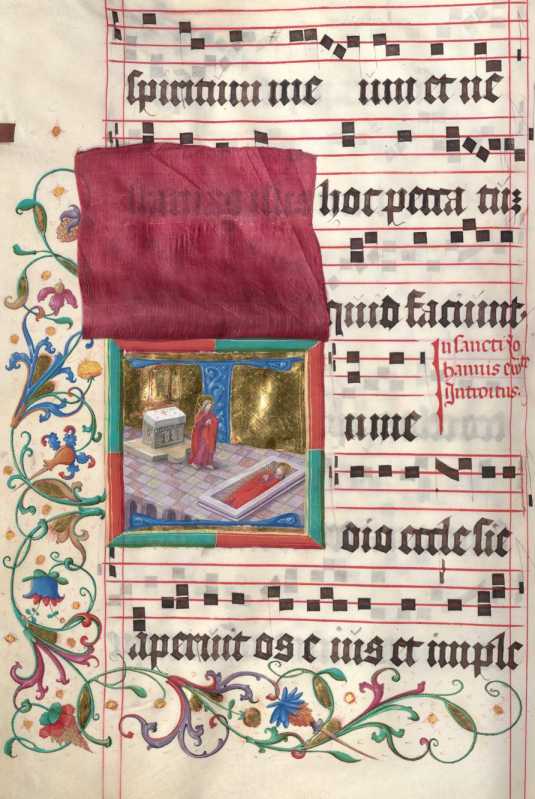 spiritum me um et ne
hoc pecca tuʒ
quid faciunt.
In sancti Jo
hannis
Introitus.
n me
dio eccle sie
aperuit os e ius et imple